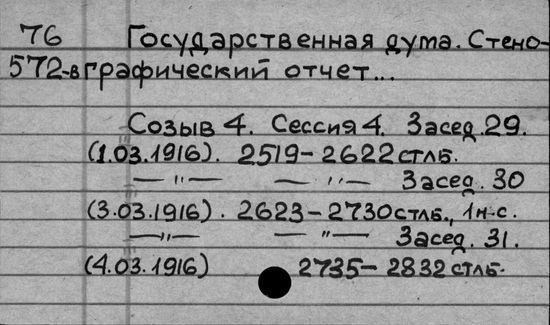 76 Государственная дума. Стено-
572-в графический отчет...
Созыв 4. Сессия 4. Засед. 29.
(1.03.1916). 2519-2622 стлб.
—"— —"— Засед. 30
(3.03.1916). 2623-2730 стлб., 1 н-с.
—"— —"— Засед. 31.
(4.03.1916) 2735-2832 стлб.